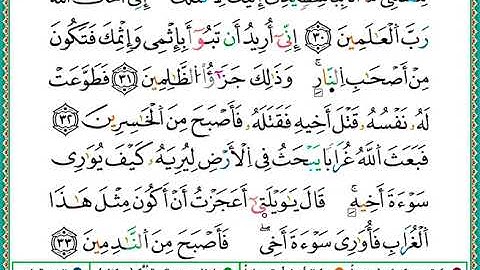 رَبَّ ٱلْعَٰلَمِينَ ٣٠ إِنِّيَ أُرِيدُ أَن تَبُوٓأَ بِإِثْمِى وَإِثْمِكَ فَتَكُونَ
مِنْ أَصْحَٰبِ ٱلنَّارِ وَذَٰلِكَ جَزَٰٓؤُا۟ ٱلظَّٰلِمِينَ ٣١ فَطَوَّعَتْ
لَهُۥ نَفْسُهُۥ قَتْلَ أَخِيهِ فَقَتَلَهُۥ فَأَصْبَحَ مِنَ ٱلْخَٰسِرِينَ ٣٢
فَبَعَثَ ٱللَّهُ غُرَابًا يَبْحَثُ فِى ٱلْأَرْضِ لِيُرِيَهُۥ كَيْفَ يُوَٰرِى
سَوْءَةَ أَخِيهِ قَالَ يَٰوَيْلَتَىٰٓ أَعَجَزْتُ أَنْ أَكُونَ مِثْلَ هَٰذَا
ٱلْغُرَابِ فَأُوَٰرِىَ سَوْءَةَ أَخِى فَأَصْبَحَ مِنَ ٱلنَّٰدِمِينَ ٣٣